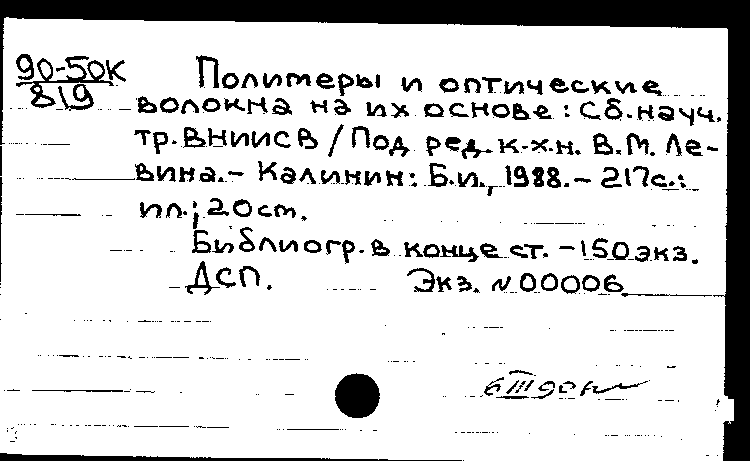 90-50К
819
Полимеры и оптические
волокна на их основе: Сб. науч.
тр. ВНИИСВ / Под ред. к.х.н. В.М. Ле-
вина. - Калинин: Б.и., 1988. - 217с.:
ил.; 20 ст.
Библиогр. в конце ст. - 150 экз.
ДСП. Экз. N 00006